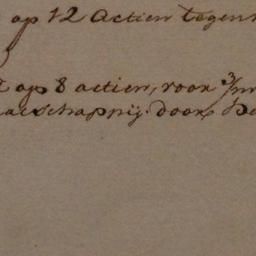 op 12 Actien tegen
op 8 actien, voor 3/m
aatschappij door